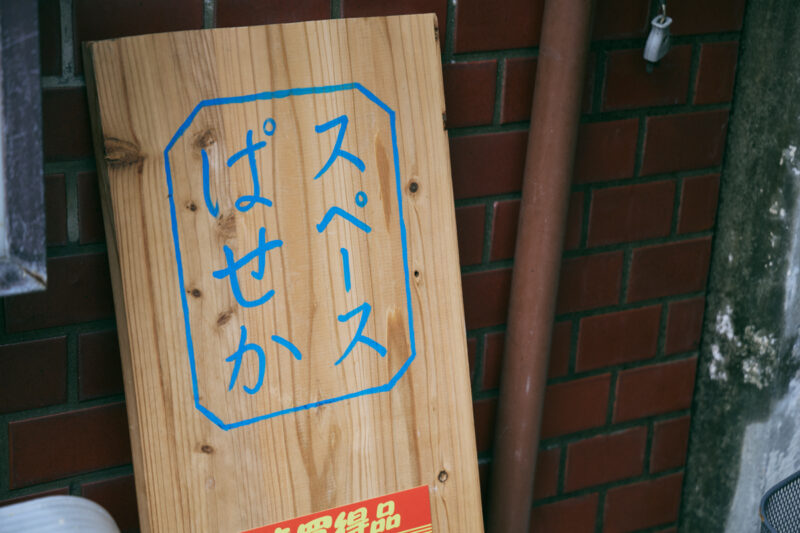 スペース
ぱせか
買得品